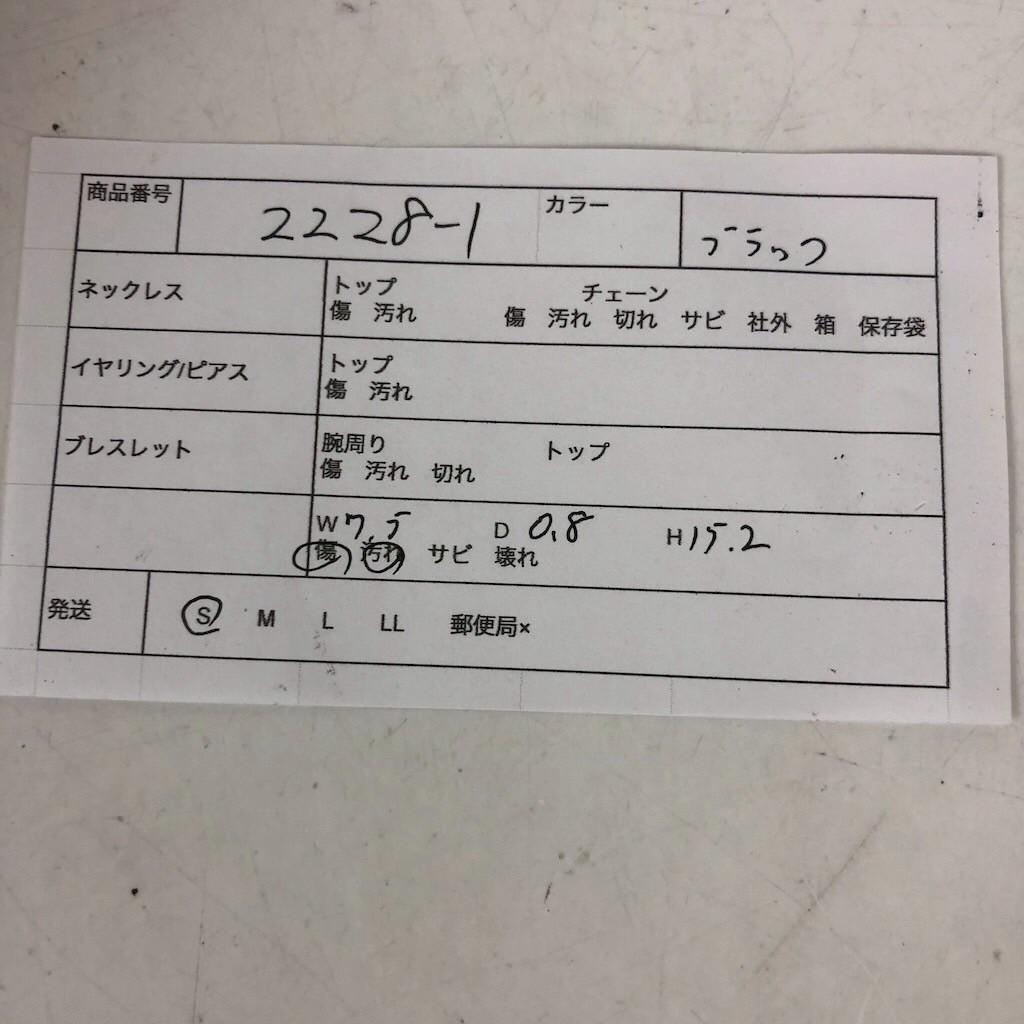 商品番号 2228-1 カラー ブラック
ネックレス トップ チェーン
傷 汚れ 傷 汚れ 切れ サビ 社外 箱 保存袋
イヤリング/ピアス トップ
傷 汚れ
ブレスレット 腕周り トップ
傷 汚れ 切れ
W 7.5 D 0.8 H 15.2
傷 汚れ サビ 壊れ
発送 S M L LL 郵便局×